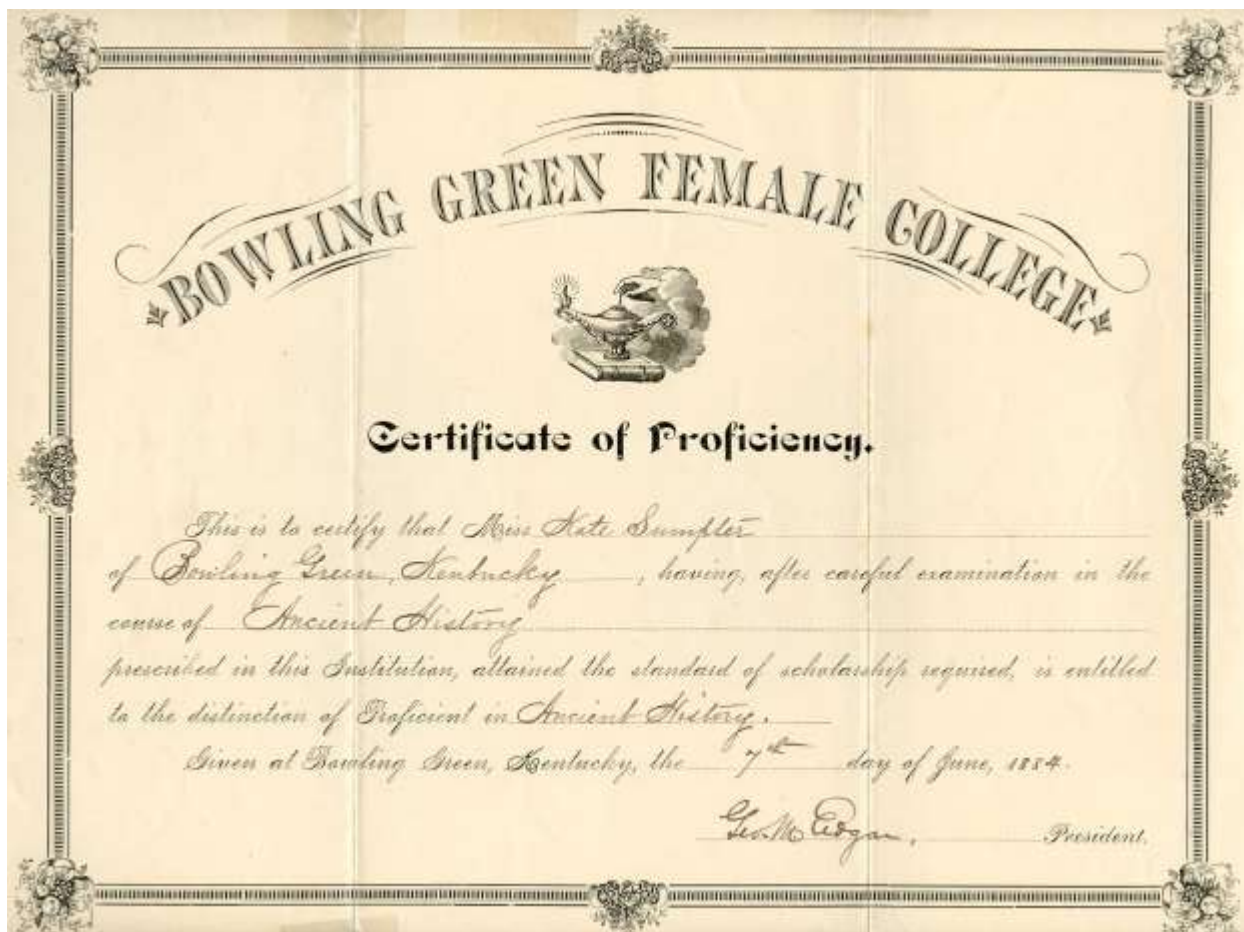 BOWLING GREEN FEMALE COLLEGE
Certificate of Proficiency.
This is to certify that Miss Kate Sumpter
of Bowling Green, Kentucky, having, after careful examination in the
course of Ancient History
prescribed in this Institution, attained the standard of scholarship required, is entitled
to the distinction of Proficient in Ancient History.
Given at Bowling Green, Kentucky, the 7th day of June, 1884.
Geo. M. Edgar, President.